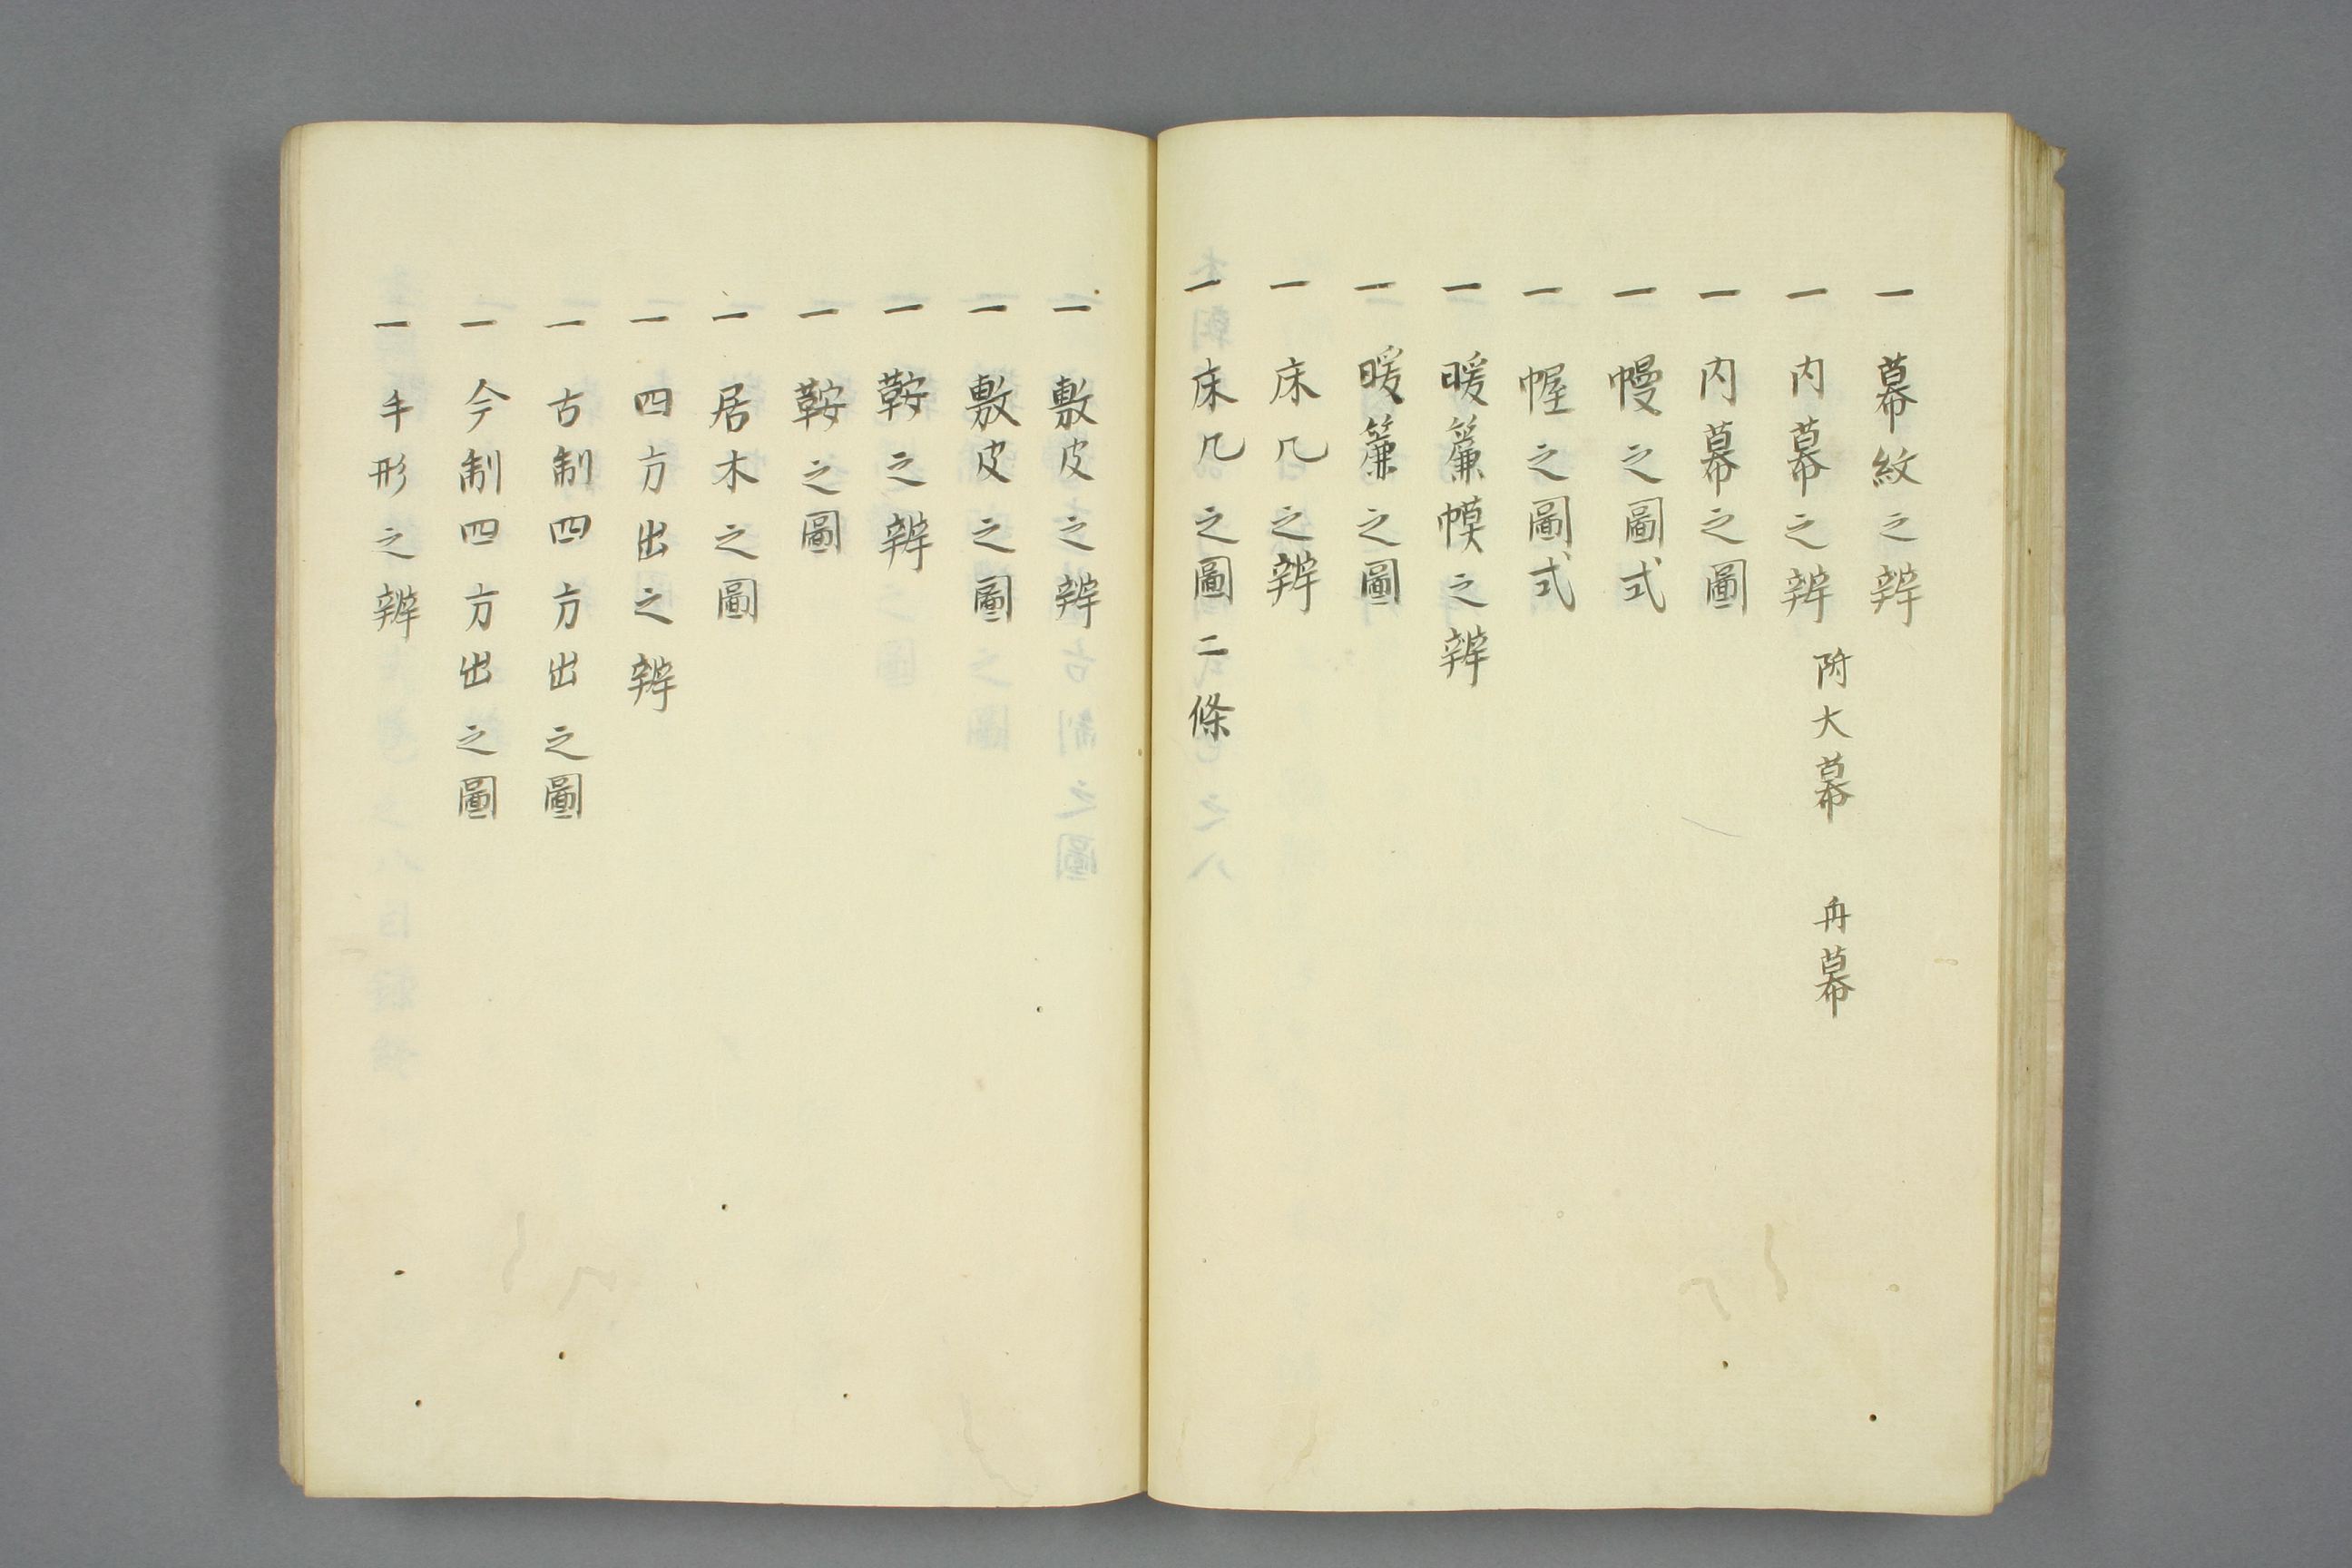 一 幕紋之辨
一 内幕之辨 附大幕 舟幕
一 内幕之圖
一 幔之圖式
一 幄之圖式
一 暖簾幙之辨
一 暖簾之圖
一 床几之辨
一 床几之圖二條
一 敷皮之辨
一 敷皮之圖
一 鞍之辨
一 鞍之圖
一 居木之圖
一 四方出之辨
一 古制四方出之圖
一 今制四方出之圖
一 手形之辨